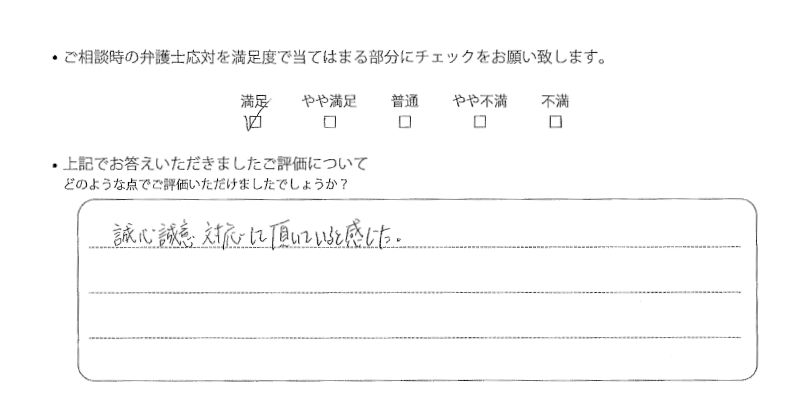 ・ご相談時の弁護士応対を満足度で当てはまる部分にチェックをお願い致します。
満足 やや満足 普通 やや不満 不満
・上記でお答えいただきましたご評価について
どのような点でご評価いただけましたでしょうか？
誠心誠意 対応して頂いていると感じた。